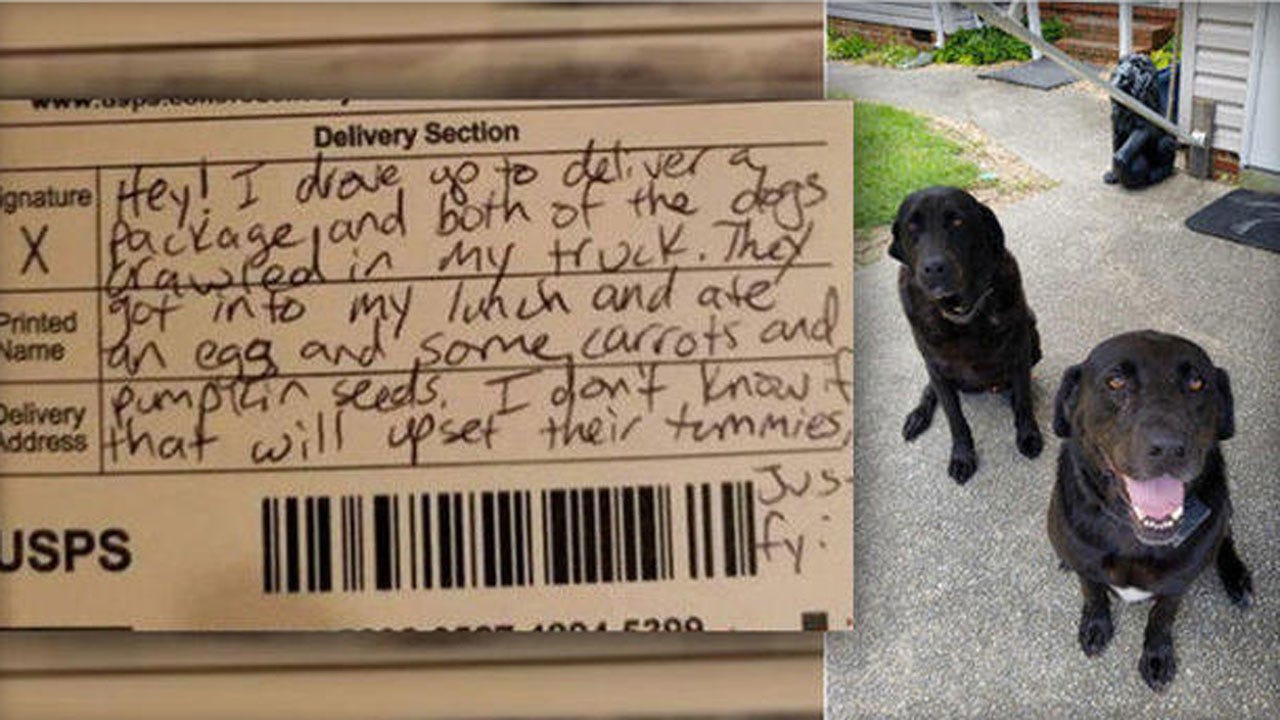 Delivery Section
ignature
X
Hey! I drove up to deliver a
package and both of the dogs
crawled in my truck. They
Printed
Name
got into my lunch and ate
an egg and some carrots and
Delivery
Address
pumpkin seeds. I don't know if
that will upset their tummies,
Jus-
fy:
USPS